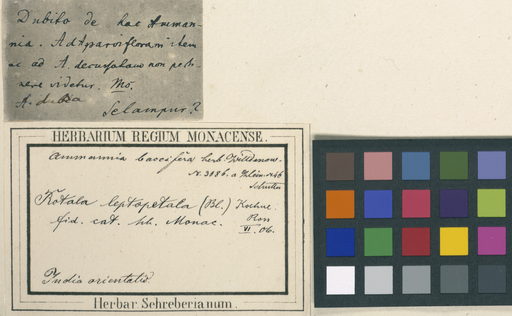 Dubito de hac Amman-
nia. Ad A. parvifloram item
ac ad A. decussatam non perti-
nere videtur. Mo.
A. dubia
Selampur?
HERBARIUM REGIUM MONACENSE.
Ammannia baccifera herb Willdenow.
N. 3086. a Klein
Rotala leptopetala (Bl.) Koehne.
fid. cat. hb. Monac.
VI. 06.
India orientalis.
Herbar. Schreberianum.